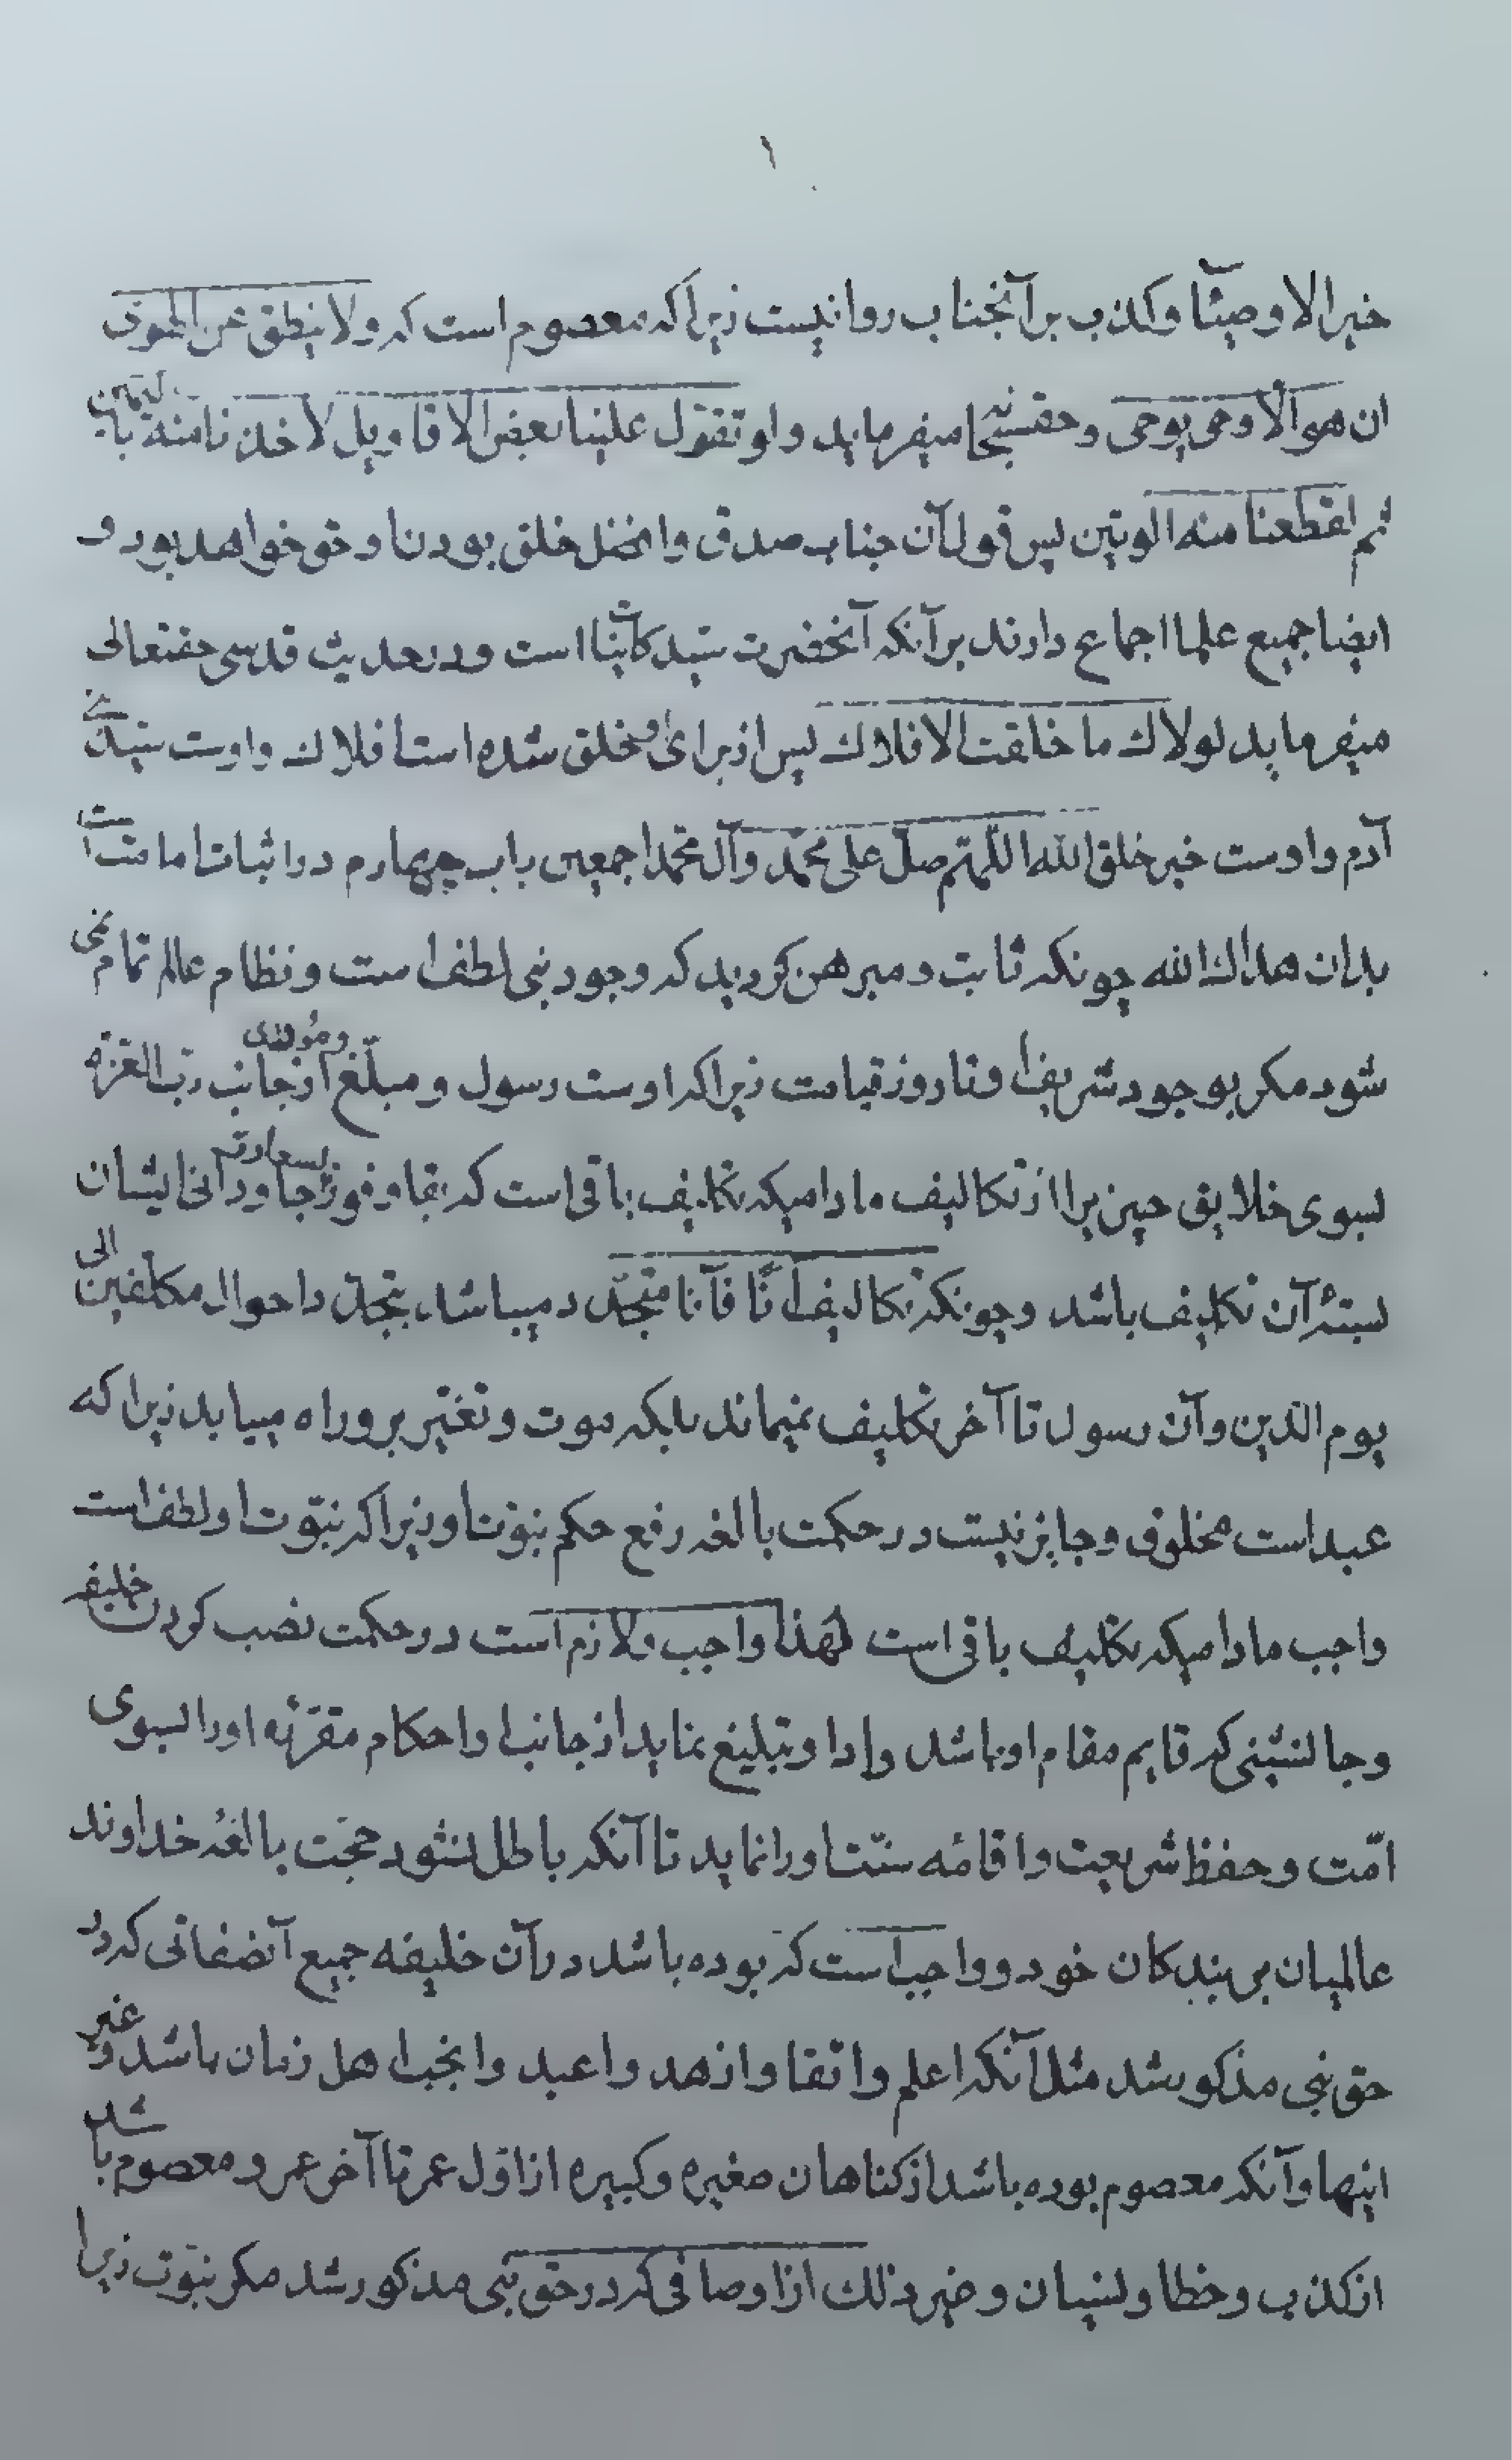 ۱
خیر الاوصیآء و کذب بر آنجناب روا نیست زیرا که معصوم است که و لا ینطق عن الهوی
ان هو الا وحی یوحی و حقسبحانه میفرماید و لو تقول علینا بعض الاقاویل لاخذنا منه بالیمین
ثم لقطعنا منه الوتین پس قول آن جناب صدق و افضل خلق بودن او حق خواهد بود و
ایضا جمیع علما اجماع دارند بر آنکه آنحضرت سید کاینات است و در حدیث قدسی حقتعالی
میفرماید لولاك ما خلقت الافلاك پس از برای او خلق شده است افلاك و اوست سید بنی
آدم و اوست خیر خلق الله اللهم صل علی محمد و آل محمد اجمعین باب چهارم در اثبات امامت است
بدان هداك الله چونکه ثابت و مبرهن کردید که وجود نبی لطف است و نظام عالم تمام نمی
شود مکر بوجود شریف او تا روز قیامت زیرا که اوست رسول و مبلغ و مؤدی از جانب رب العزة
بسوی خلایق چیزیرا از تکالیف مادامیکه تکلیف باقی است که بقا و فوز بسعادت جاودانی ایشان
بسته آن تکلیف باشد و چونکه تکالیف آنًا فآنا متجدد میباشد، بتجدد احوال مکلفین الی
یوم الدین و آن رسول تا آخر تکلیف نمیماند بلکه موت و تغیر بر او راه مییابد زیرا که
عبد است مخلوق و جایز نیست در حکمت بالغه رفع حکم نبوت او زیرا که نبوت او لطف است
واجب مادامیکه تکلیف باقی است لهذا واجب و لازم است در حکمت نصب کردن خلیفه
و جانشینی که قایم مقام او باشد و ادا و تبلیغ نماید از جانب او احکام مقرره او را بسوی
امّت و حفظ شریعت و اقامه سنّت او را نماید تا آنکه باطل نشود حجّت بالغه خداوند
عالمیان بر بندکان خود و واجب است که بوده باشد در آن خلیفه جمیع آنصفاتی که در
حق نبی مذکور شد مثل آنکه اعلم و اتقا و ازهد و اعبد و انجب اهل زمان باشد و غیر
اینها و آنکه معصوم بوده باشد از کناهان صغیره و کبیره از اول عمر تا آخر عمر و معصوم باشد
از کذب و خطا و نسیان و غیر ذلك از اوصافی که در حق نبی مذکور شد مکر نبوّت زیرا